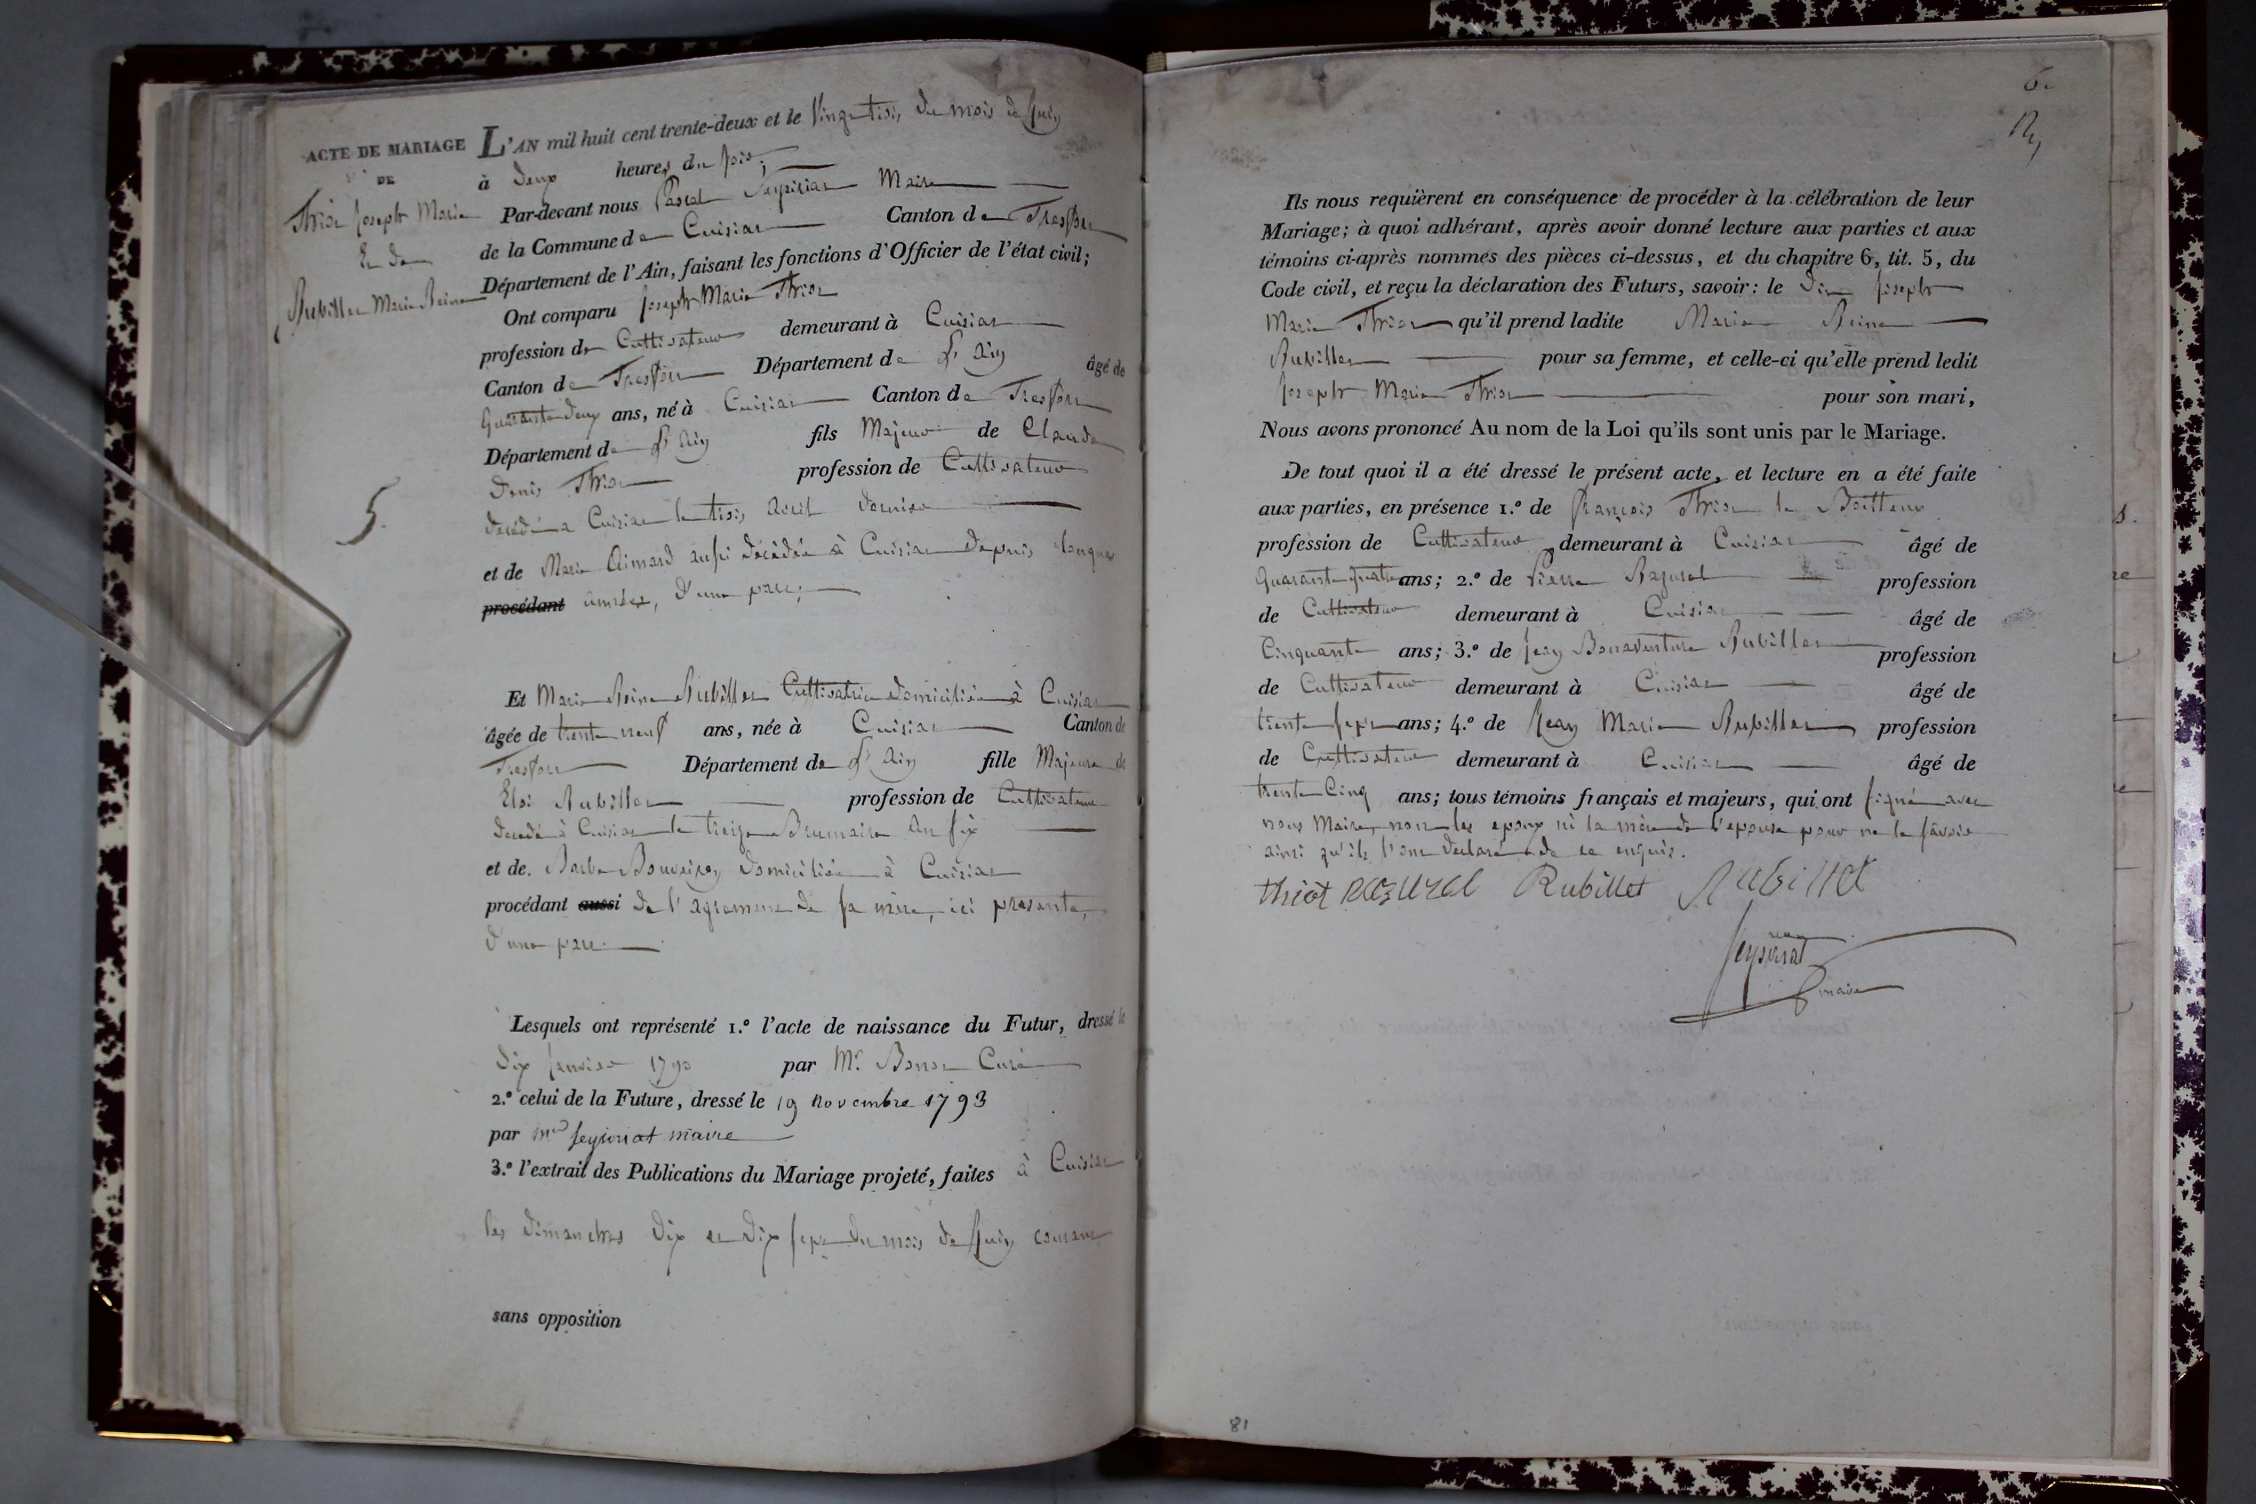 ACTE DE MARIAGE
DE
Thiot Joseph Marie
Et de
Rubillet Marie Reine
5.
L'AN mil huit cent trente-deux et le Vingt trois du mois de Juin
à deux heures du soir,
Par-devant nous Pascal Seysiriat Maire
de la Commune de Cuisiat Canton de Treffort
Département de l'Ain, faisant les fonctions d'Officier de l'état civil;
Ont comparu Joseph Marie Thiot
profession de Cultivateur demeurant à Cuisiat
Canton de Treffort Département de l'Ain âgé de
Quarante deux ans, né à Cuisiat Canton de Treffort
Département de l'Ain fils Majeur de Claude
Denis Thiot profession de Cultivateur
décédé a Cuisiat le trois avril dernier
et de Marie Aimard aussi décédée à Cuisiat depuis longues
procédant années, d'une part;
Et Marie Reine Rubillet Cultivatrice domiciliée à Cuisiat
âgée de trente neuf ans, née à Cuisiat Canton de
Treffort Département de l'Ain fille Majeure de
Eloi Rubillet profession de Cultivateur
décédé à Cuisiat le treize Brumaire an six
et de Barbe Bouveiron domiciliée à Cuisiat
procédant aussi de l'agrement de sa mère, ici presente,
d'une part.
Lesquels ont représenté 1.º l'acte de naissance du Futur, dressé le
dix Janvier 1790 par Mr. Curé
2.º celui de la Future, dressé le 19 novembre 1793
par Seysiriat maire
3.º l'extrait des Publications du Mariage projeté, faites à Cuisiat
les dimanches dix et dix sept du mois de Juin courant
sans opposition
6.
Ils nous requièrent en conséquence de procéder à la célébration de leur
Mariage; à quoi adhérant, après avoir donné lecture aux parties et aux
témoins ci-après nommés des pièces ci-dessus, et du chapitre 6, tit. 5, du
Code civil, et reçu la déclaration des Futurs, savoir: le dit Joseph
Marie Thiot qu'il prend ladite Marie Reine
Rubillet pour sa femme, et celle-ci qu'elle prend ledit
Joseph Marie Thiot pour son mari,
Nous avons prononcé Au nom de la Loi qu'ils sont unis par le Mariage.
De tout quoi il a été dressé le présent acte, et lecture en a été faite
aux parties, en présence 1.º de François Thiot le
profession de Cultivateur demeurant à Cuisiat âgé de
Quarante quatre ans; 2.º de Pierre Razurel profession
de Cultivateur demeurant à Cuisiat âgé de
Cinquante ans; 3.º de Jean Bonaventure Rubillet profession
de Cultivateur demeurant à Cuisiat âgé de
trente sept ans; 4.º de Jean Marie Rubillet profession
de Cultivateur demeurant à Cuisiat âgé de
trente Cinq ans; tous témoins français et majeurs, qui ont signé avec
nous Maire, non les epoux ni la mère de l'epouse pour ne le savoir
ainsi qu'ils l'ont déclaré de ce enquis.
thiot Razurel Rubillet Rubillet
Seysiriat
maire
81